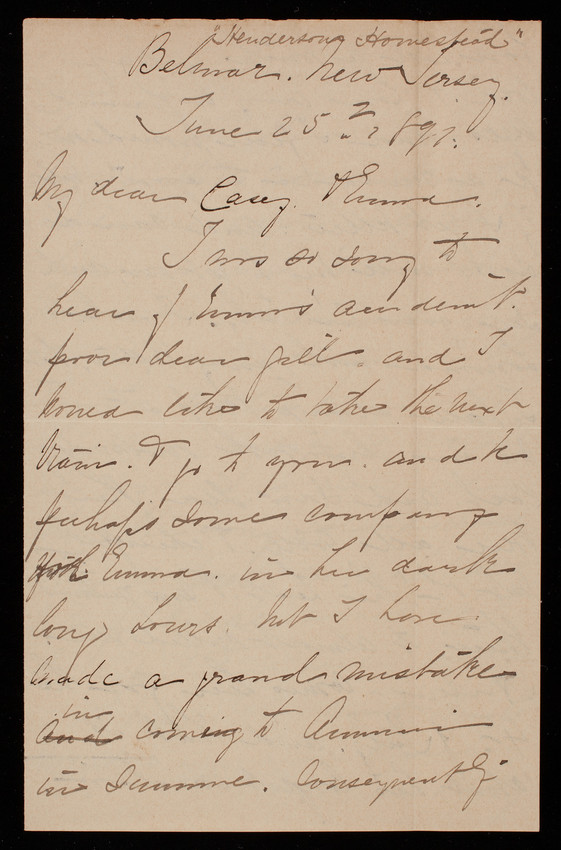 "Hendersons Homestead"
Belmar. New Jersey.
June 25th 1897.
My dear Casey. & Emma.
I was so sorry to
hear of Emma's accident.
poor dear girl and I
would like to take the next
train. & go to you. and be
perhaps some company
with Emma. in her dark
long hours. but I have.
made a grand mistake
in
and coming to
in summer. Consequently